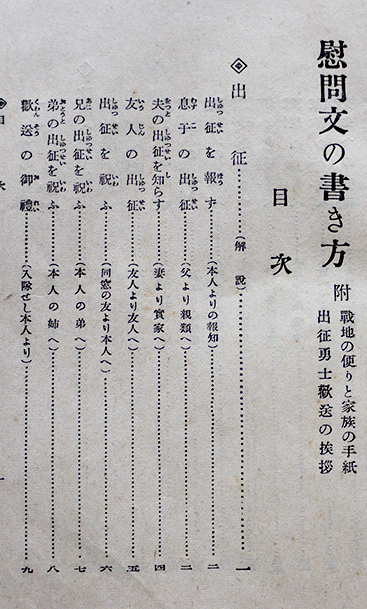 慰問文の書き方
附 戰地の便りと家族の手紙
出征勇士歡送の挨拶
目次
◈出征…………(解說)…………一
出征を報ず…………(本人よりの報知)…………二
息子の出征…………(父より親類へ)…………二
夫の出征を知らす…………(妻より實家へ)…………四
友人の出征…………(友人より友人へ)…………五
出征を祝ふ…………(同窓の友より本人へ)…………六
兄の出征を祝ふ…………(本人の弟へ)…………七
弟の出征を祝ふ…………(本人の姉へ)…………八
歡送の御禮…………(入隊せし本人より)…………九
目次 一